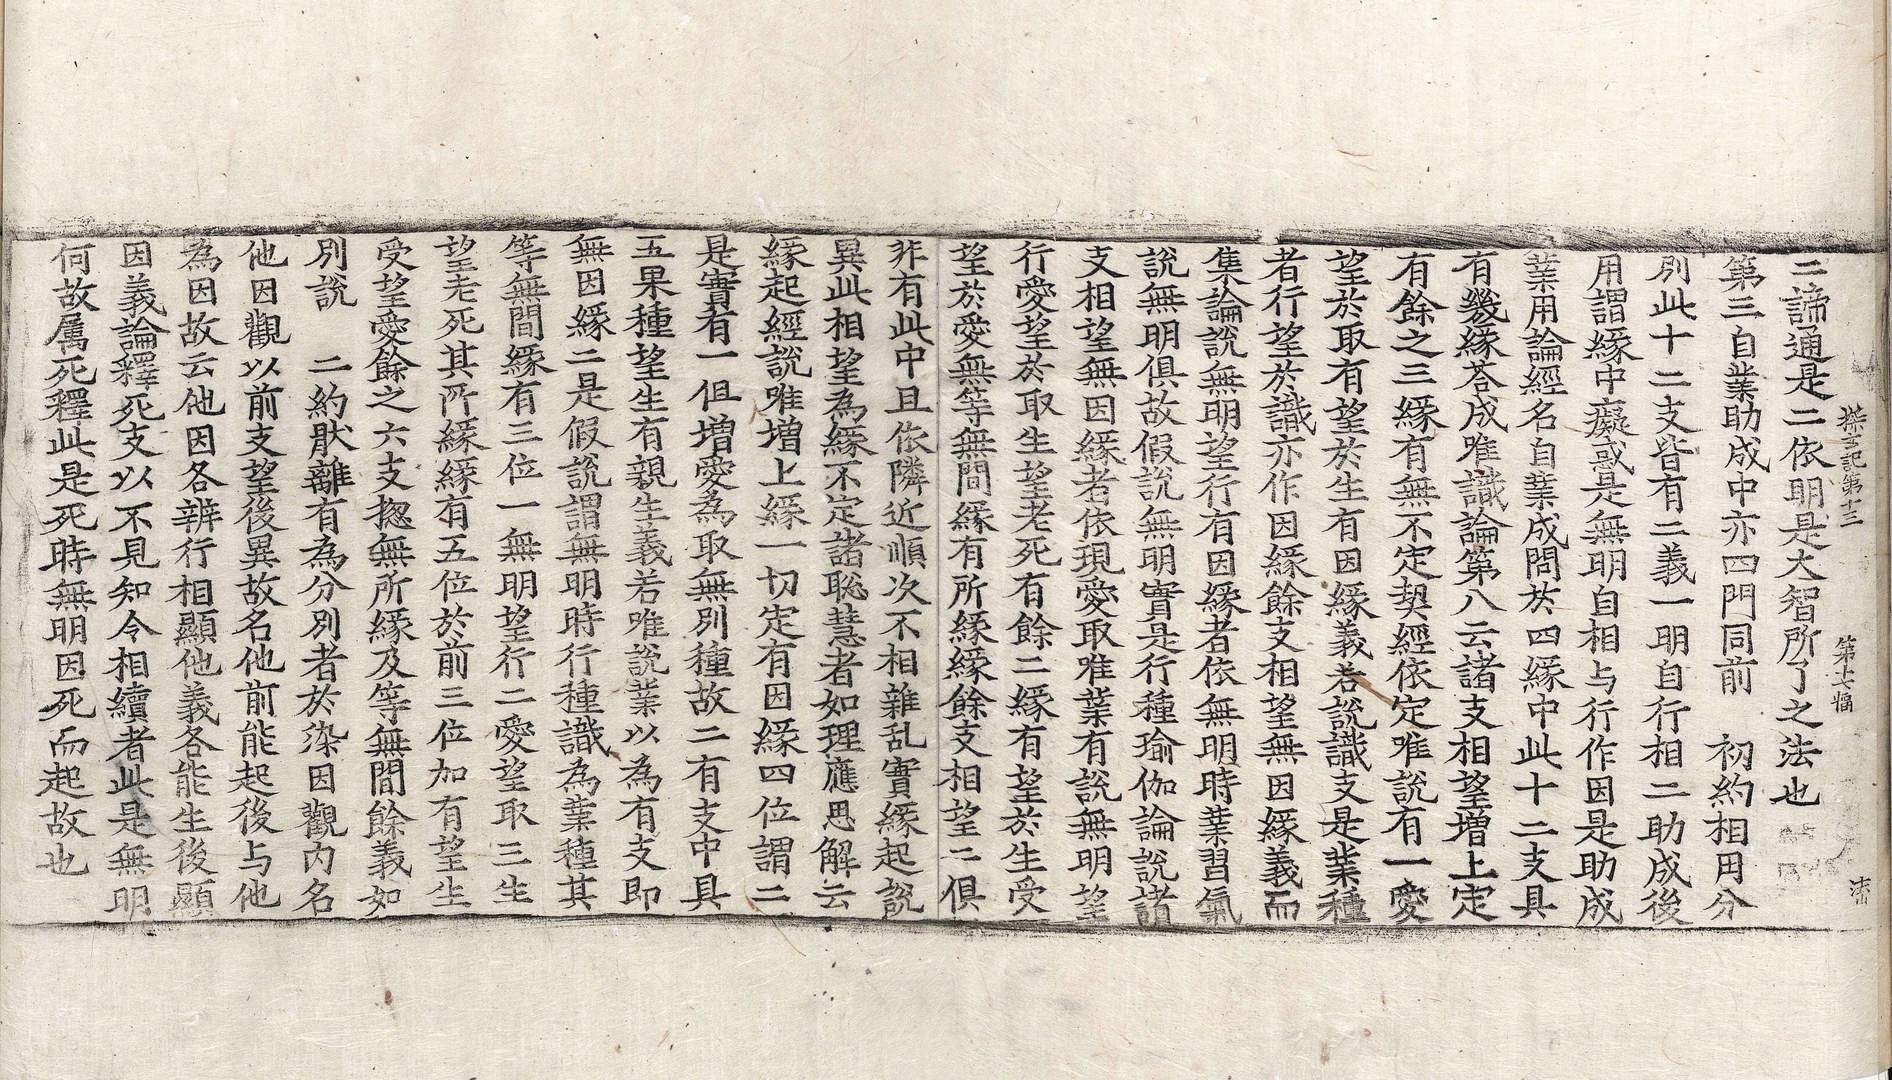 探玄記第十三 第十六幅
二諦通是二依明是大智所了之法也
第三自業助成中亦四門同前 初約相用分
別此十二支皆有二義一明自行相二助成後
用謂緣中癡惑是無明自相与行作因是助成
業用論經名自業成問於四緣中此十二支具
有幾緣荅成唯識論第八云諸支相望增上定
有餘之三緣有無不定契經依定唯說有一愛
望於取有望於生有因緣義若說識支是業種
者行望於識亦作因緣餘支相望無因緣義而
集論說無明望行有因緣者依無明時業習氣
說無明俱故假說無明實是行種瑜伽論說諸
支相望無因緣者依現愛取唯業有說無明望
行愛望於取生望老死有餘二緣有望於生受
望於愛無等無間緣有所緣緣餘支相望二俱
非有此中且依隣近順次不相雜乱實緣起說
異此相望為緣不定諸聡慧者如理應思解云
緣起經說唯增上緣一切定有因緣四位謂二
是實有一伹增愛為取無別種故二有支中具
五果種望生有親生義若唯說業以為有支即
無因緣二是假說謂無明時行種識為業種其
等無間緣有三位一無明望行二愛望取三生
望老死其所緣緣有五位於前三位加有望生
受望愛餘之六支揔無所緣及等無間餘義如
別說 二約猒離有為分別者於染因觀內名
他因觀以前支望後異故名他前能起後与他
為因故云他因各辨行相顯他義各能生後顯
因義論釋死支以不見知令相續者此是無明
何故属死釋此是死時無明因死而起故也